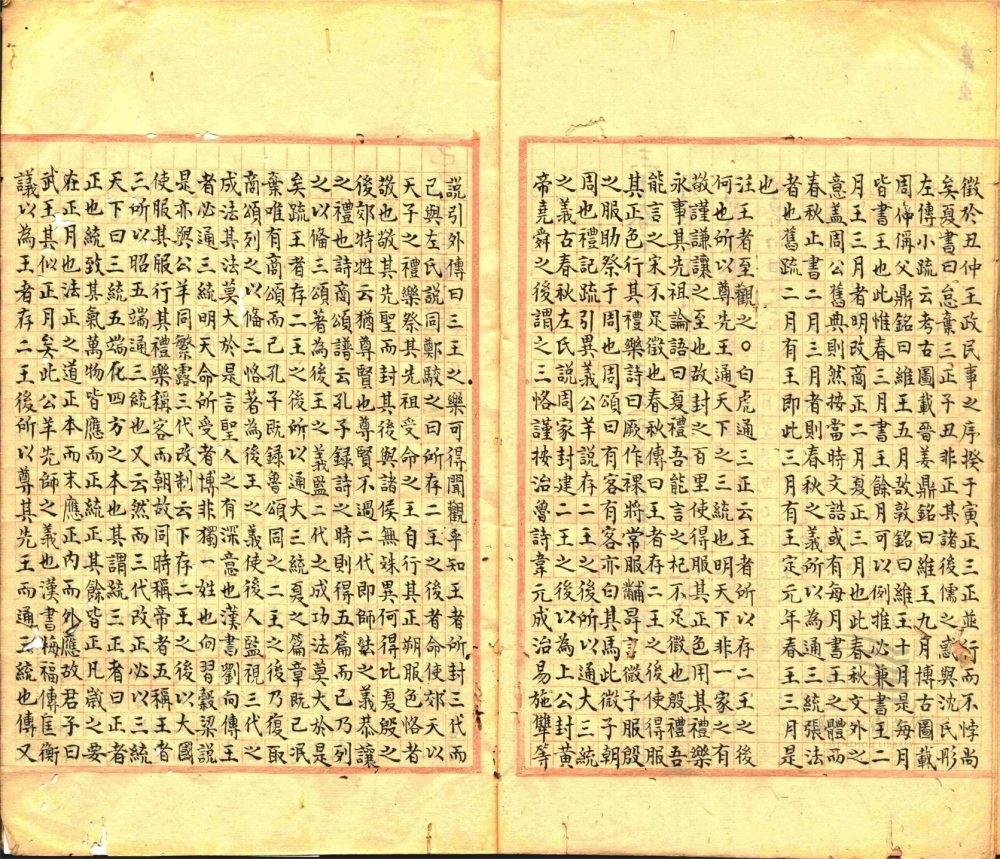 徵於丑仲王政民事之序揆于寅正三正並行而不悖尚
矣夏書曰怠棄三正子丑非正其諸後儒之惑與沈氏彤
左傳小疏云考古圖載晉姜鼎銘曰維王九月博古圖載
周仲偁父鼎銘曰維王五月敔敦銘曰維王十月是每月
皆書王也此惟春三月書王餘月可以例推必兼書王二
月王三月者明改商正二月夏正三月也此春秋文外之
意盖周公舊典則然按當時文誥或有每月書王之體而
春秋止書二月三月者則春秋之義所以為通三統張法
者也舊疏二月有王即此三月有王定元年春王三月是
也
注王者至觀之○白虎通三正云王者所以存二王之後
何也所以尊先王通天下之三統也明天下非一家之有
敬謹謙讓之至也故封之百里使得服其正色用其禮樂
永事其先祖論語曰夏禮吾能言之杞不足徵也殷禮吾
能言之宋不足徵也春秋傳曰王者存二王之後使得服
其正色行其禮樂詩曰厥作祼將常服黼冔言微子服殷
之服助祭于周也周頌曰有客有客亦白其馬此微子朝
周也禮記疏引異義公羊說存二王之後所以通大三統
之義古春秋左氏說周家封建二王之後以為上公封黃
帝堯舜之後謂之三恪謹按治魯詩韋元成治易施讎等
說引外傳曰三王之樂可得聞觀乎知王者所封三代而
已與左氏說同鄭駁之曰所存二王之後者命使郊天以
天子之禮樂祭其先祖受命之王自行其正朔服色恪者
敬也敬其先聖而封其後與諸侯無殊異何得比夏殷之
後郊特牲云猶尊賢也尊賢不過二代即師法之義恭讓
之禮也詩商頌譜云孔子録詩之時則得五篇而已乃列
之以備三頌著為後王之義監二代之成功法莫大於是
矣疏王者存二王之後所以通大三統夏之篇章既已泯
棄唯有商頌而已孔子既録魯頌同之二王之後乃復取
商頌列之以備三恪著為後王之義使後人監視三代之
成法其法莫大於是言聖人之有深意也漢書劉向傳王
者必通三統明天命所受者博非獨一姓也向習穀梁說
是亦與公羊同繁露三代改制云下存二王之後以大國
使服其服行其禮樂稱客而朝故同時稱帝者五稱王者
三所以昭五端通三統也又云然而三代改正必以三統
天下曰三統五端化四方之本也其謂統三正者曰正者
正也統致其氣萬物皆應而正統正其餘皆正凡歲之要
在正月也法正之道正本而末應正內而外應故君子曰
武王其似正月矣此公羊先師之義也漢書梅福傳匡衡
議以為王者存二王後所以尊其先王而通三統也傳又